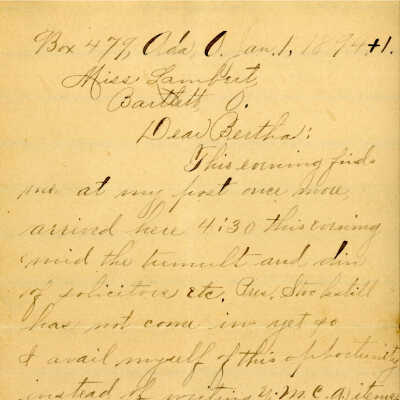 Box 479, Ada, O. Jan. 1, 1894+1.
Miss Lambert,
Bartlett, O.
Dear Bertha:
This evening finds
me at my post once more,
arrived here 4:30 this evening
mid the tumult and din
of solicitors etc. Pres. Stockstill
has not come in yet so
I avail myself of this opportunity
instead of writing Y.M.C.A items